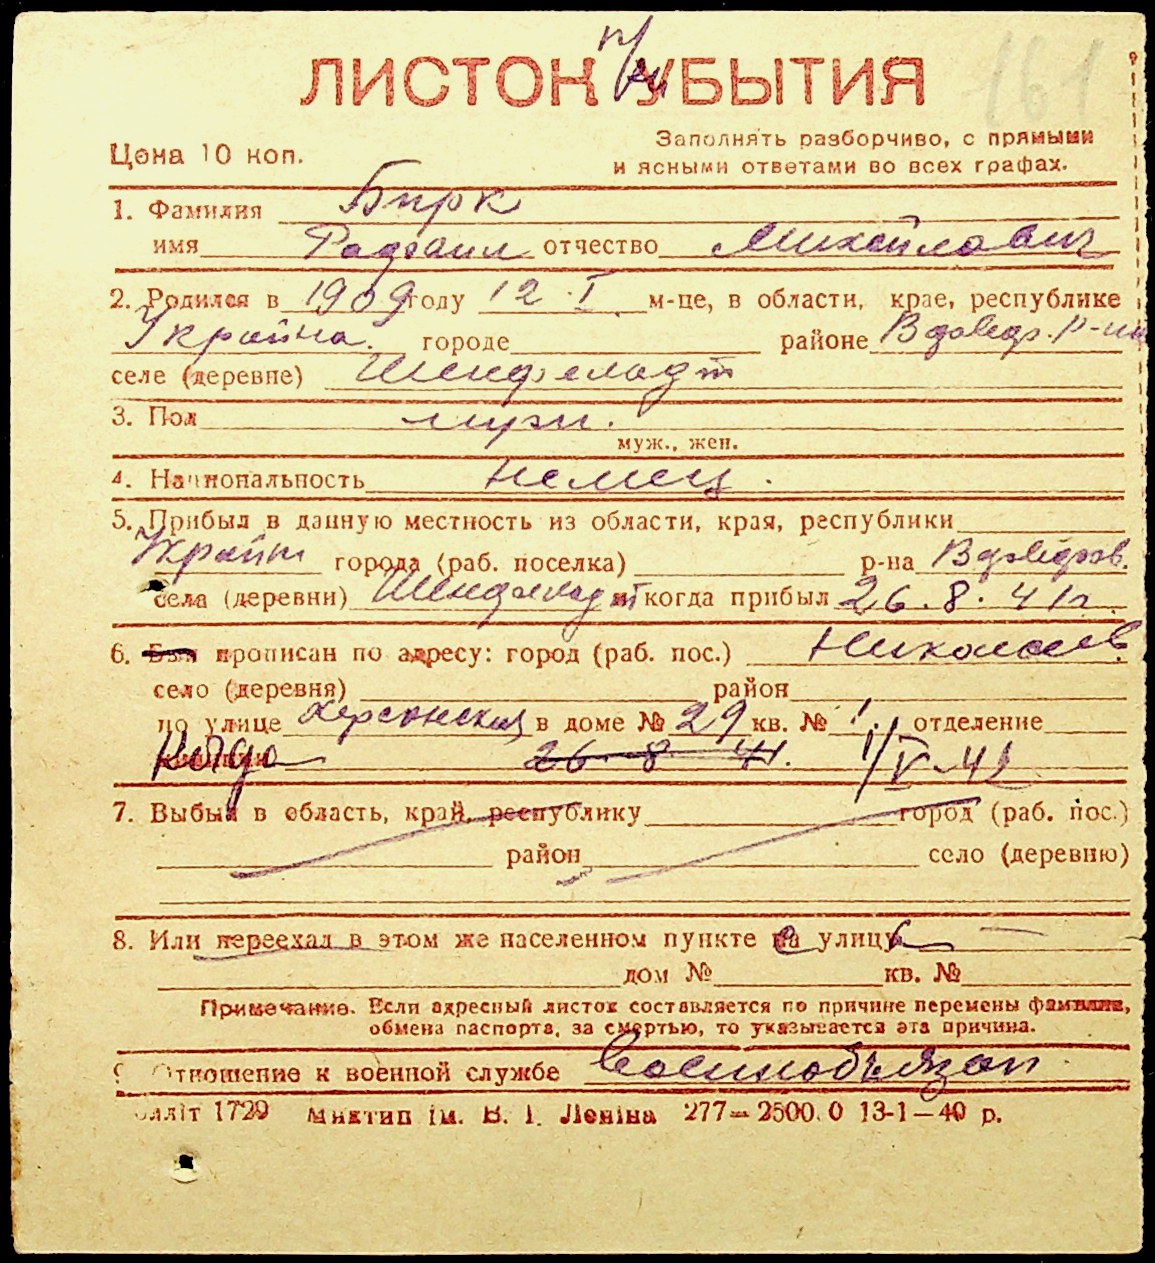 161
ЛИСТОК УБЫТИЯ
Цена 10 коп.
Заполнять разборчиво, с прямыми
и ясными ответами во всех графах.
1. Фамилия Бирк
имя отчество Михайлович
2. Родился в 1909 году 12.I. м-це, в области, крае, республике
Украина. городе районе
селе (деревне)
3. Пол муж.
муж., жен.
4. Национальность Немец.
5. Прибыл в данную местность из области, края, республики
города (раб. поселка) р-на
села (деревни) и когда прибыл 26.8.41г.
6. Был прописан по адресу: город (раб. пос.) Николаев
село (деревня) район
по улице Херсонская в доме № 29 кв. № 1. отделение
Когда 26-8-41. 1/V-42
7. Выбыл в область, край, республику город (раб. пос.)
район село (деревню)
8. Или переехал в этом же населенном пункте на улицу
дом № кв. №
Примечание. Если адресный листок составляется по причине перемены фамилии,
обмена паспорта, за смертью, то указывается эта причина.
9. Отношение к военной службе Военнообязан.
1729 ім. В. І. Леніна 277—2500.0 13-1—40 р.